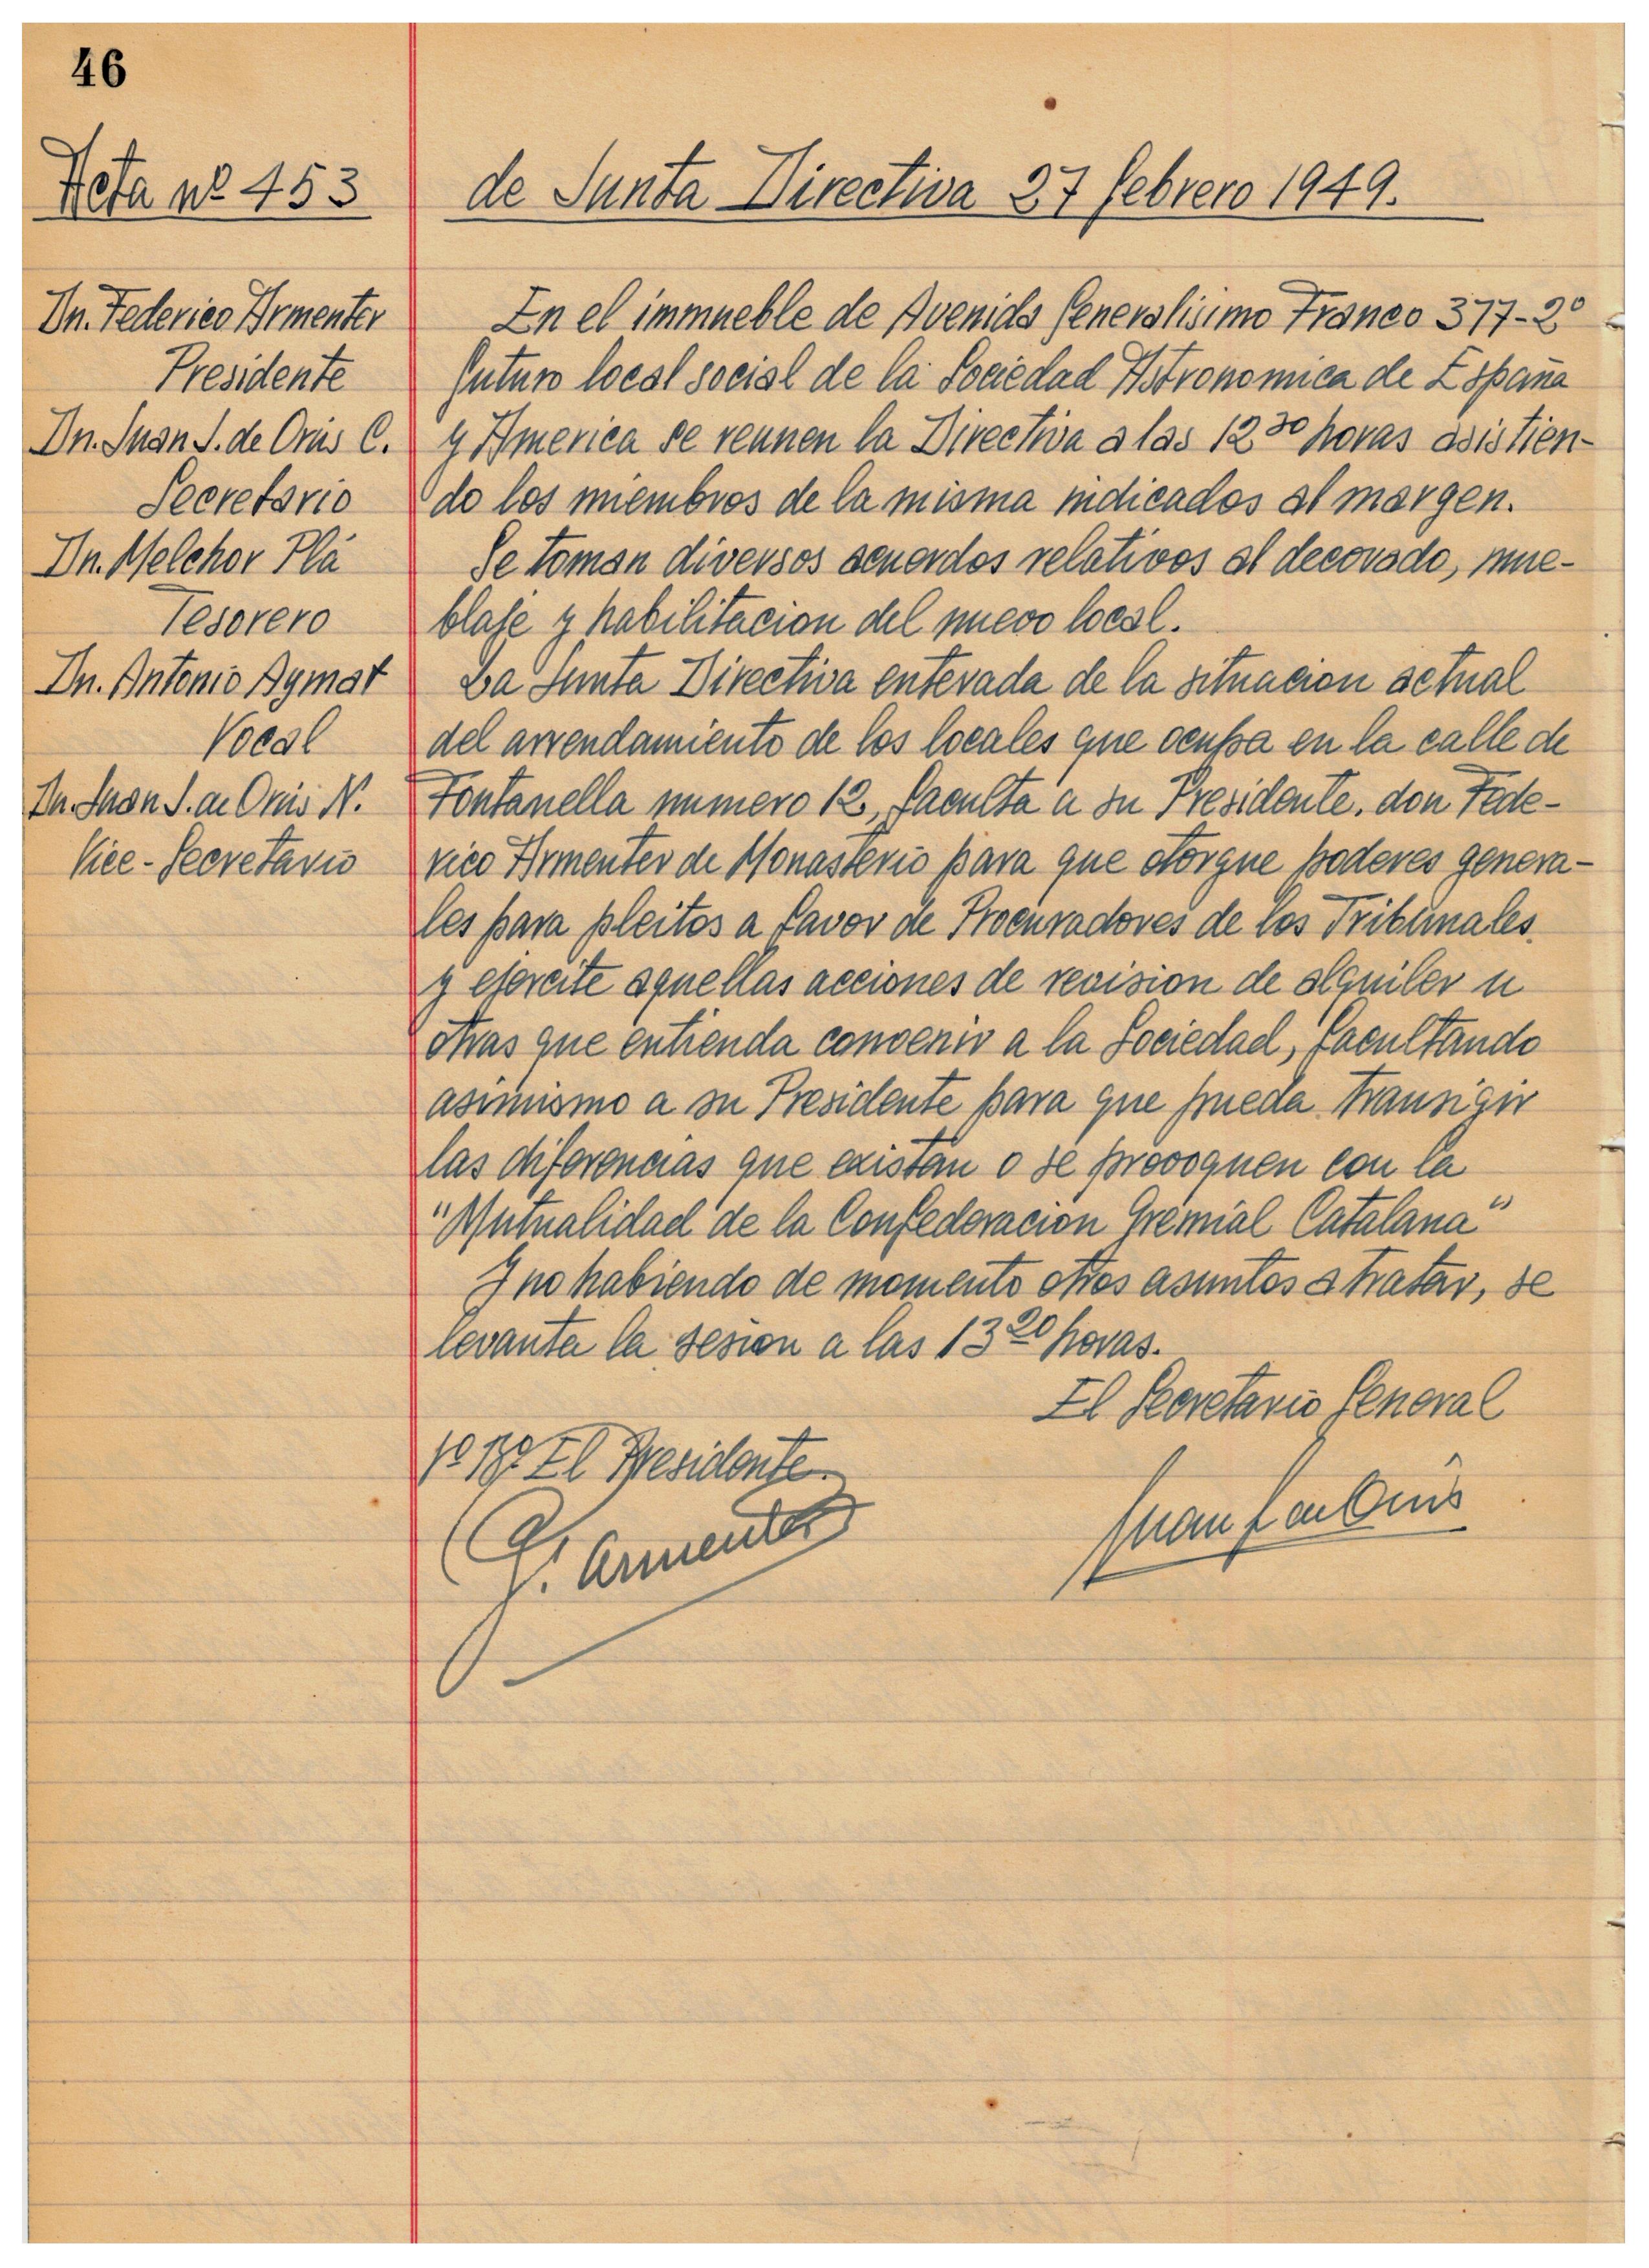 46
Acta nº 453
de Junta Directiva 27 febrero 1949.
Dn. Federico Armenter
Presidente
Dn. Juan J. de Orús C.
Secretario
Dn. Melchor Plá
Tesorero
Dn. Antonio Aymat
Vocal
Dn. Juan J. de Orús N.
Vice-Secretario
En el immueble de Avenida Generalisimo Franco 377-2º
futuro local social de la Sociedad Astronomica de España
y America se reunen la Directiva a las 12 30 horas asistien-
do los miembros de la misma indicados al margen.
Se toman diversos acuerdos relativos al decorado, mue-
blaje y habilitacion del nuevo local.
La Junta Directiva enterada de la situacion actual
del arrendamiento de los locales que ocupa en la calle de
Fontanella numero 12, faculta a su Presidente. don Fede-
rico Armenter de Monasterio para que otorgue poderes genera-
les para pleitos a favor de Procuradores de los Tribunales
y ejercite aquellas acciones de revision de alquiler u
otras que entienda convenir a la Sociedad, facultando
asimismo a su Presidente para que pueda transigir
las diferencias que existan o se provoquen con la
"Mutualidad de la Confederacion Gremial Catalana"
Y no habiendo de momento otros asuntos a tratar, se
levanta la sesion a las 13 20 horas.
El Secretario General
Vº Bº El Presidente
F. Armenter
Juan J de Orús